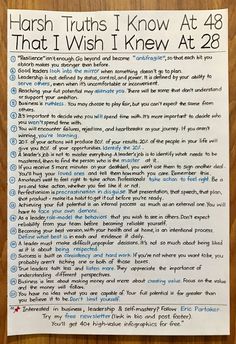 Harsh Truths I Know At 48
That I Wish I Knew At 28
① "Resilience" isn't enough. Go beyond and become "antifragile", so that each hit
makes you stronger than before.
② Good leaders look into the mirror when something doesn't go to plan.
③ Leadership is not defined by status, control, and power. It is defined by your ability to
serve others, even when it's uncomfortable or inconvenient.
④ Reaching your full potential may alienate you. There will be some that don't understand
or support your ambition.
⑤ Business is ruthless. You may choose to play fair, but you can't expect the same from
others.
⑥ It's important to decide who you will spend time with. It's more important to decide
who you won't spend time with.
⑦ You will encounter failures, rejections, and heartbreaks on your journey. If you aren't
winning, you're learning.
⑧ 20% of your actions will produce 80% of your results. 20% of the people in your life will
give you 80% of your opportunities. Identify the 20%.
⑨ A leader's job is not to master everything. A leader's job is to identify which needs to be
mastered, then to find the person who is the master at it.
⑩ If you had 5 more minutes on your deathbed, you won't use them to sign another deal.
You'll hug your loved ones and tell them how much you care. Remember this.
⑪ Amateurs wait to feel right to take action. Professionals take action to feel right. Be a
pro and take action, whether you feel like it or not.
⑫ Perfectionism is procrastination in disguise. That presentation, that speech, that plan,
that product - make it a habit to get it out before you're ready.
⑬ Achieving your full potential is an internal process as much as an external one. You will
have to face your own demons.
⑭ As a leader, role-model the behaviors that you wish to see in others. Don't expect
reliability from your team before becoming reliable yourself.
⑮ Becoming your best version, with your health and at home, is an intentional process.
Define what best is in each and evidence it daily.
⑯ A leader must make difficult, unpopular decisions. It's not so much about being liked
as it is about being respected.
⑰ Success is built on consistency and hard work. If you're not where you want to be, you
probably aren't taking one or both of those boxes.
⑱ True leaders talk less and listen more. They appreciate the importance of
understanding different perspectives.
⑲ Business is less about making money and more about creating value. Focus on the value
and the money will follow.
⑳ You have no idea what you are capable of. Your full potential is far greater than
you believe it to be. Don't limit yourself.
Interested in business, leadership & self-mastery? Follow Eric Partaker.
Try my free newsletter (link in bio and post footer).
You'll get 40+ high-value infographics for free.